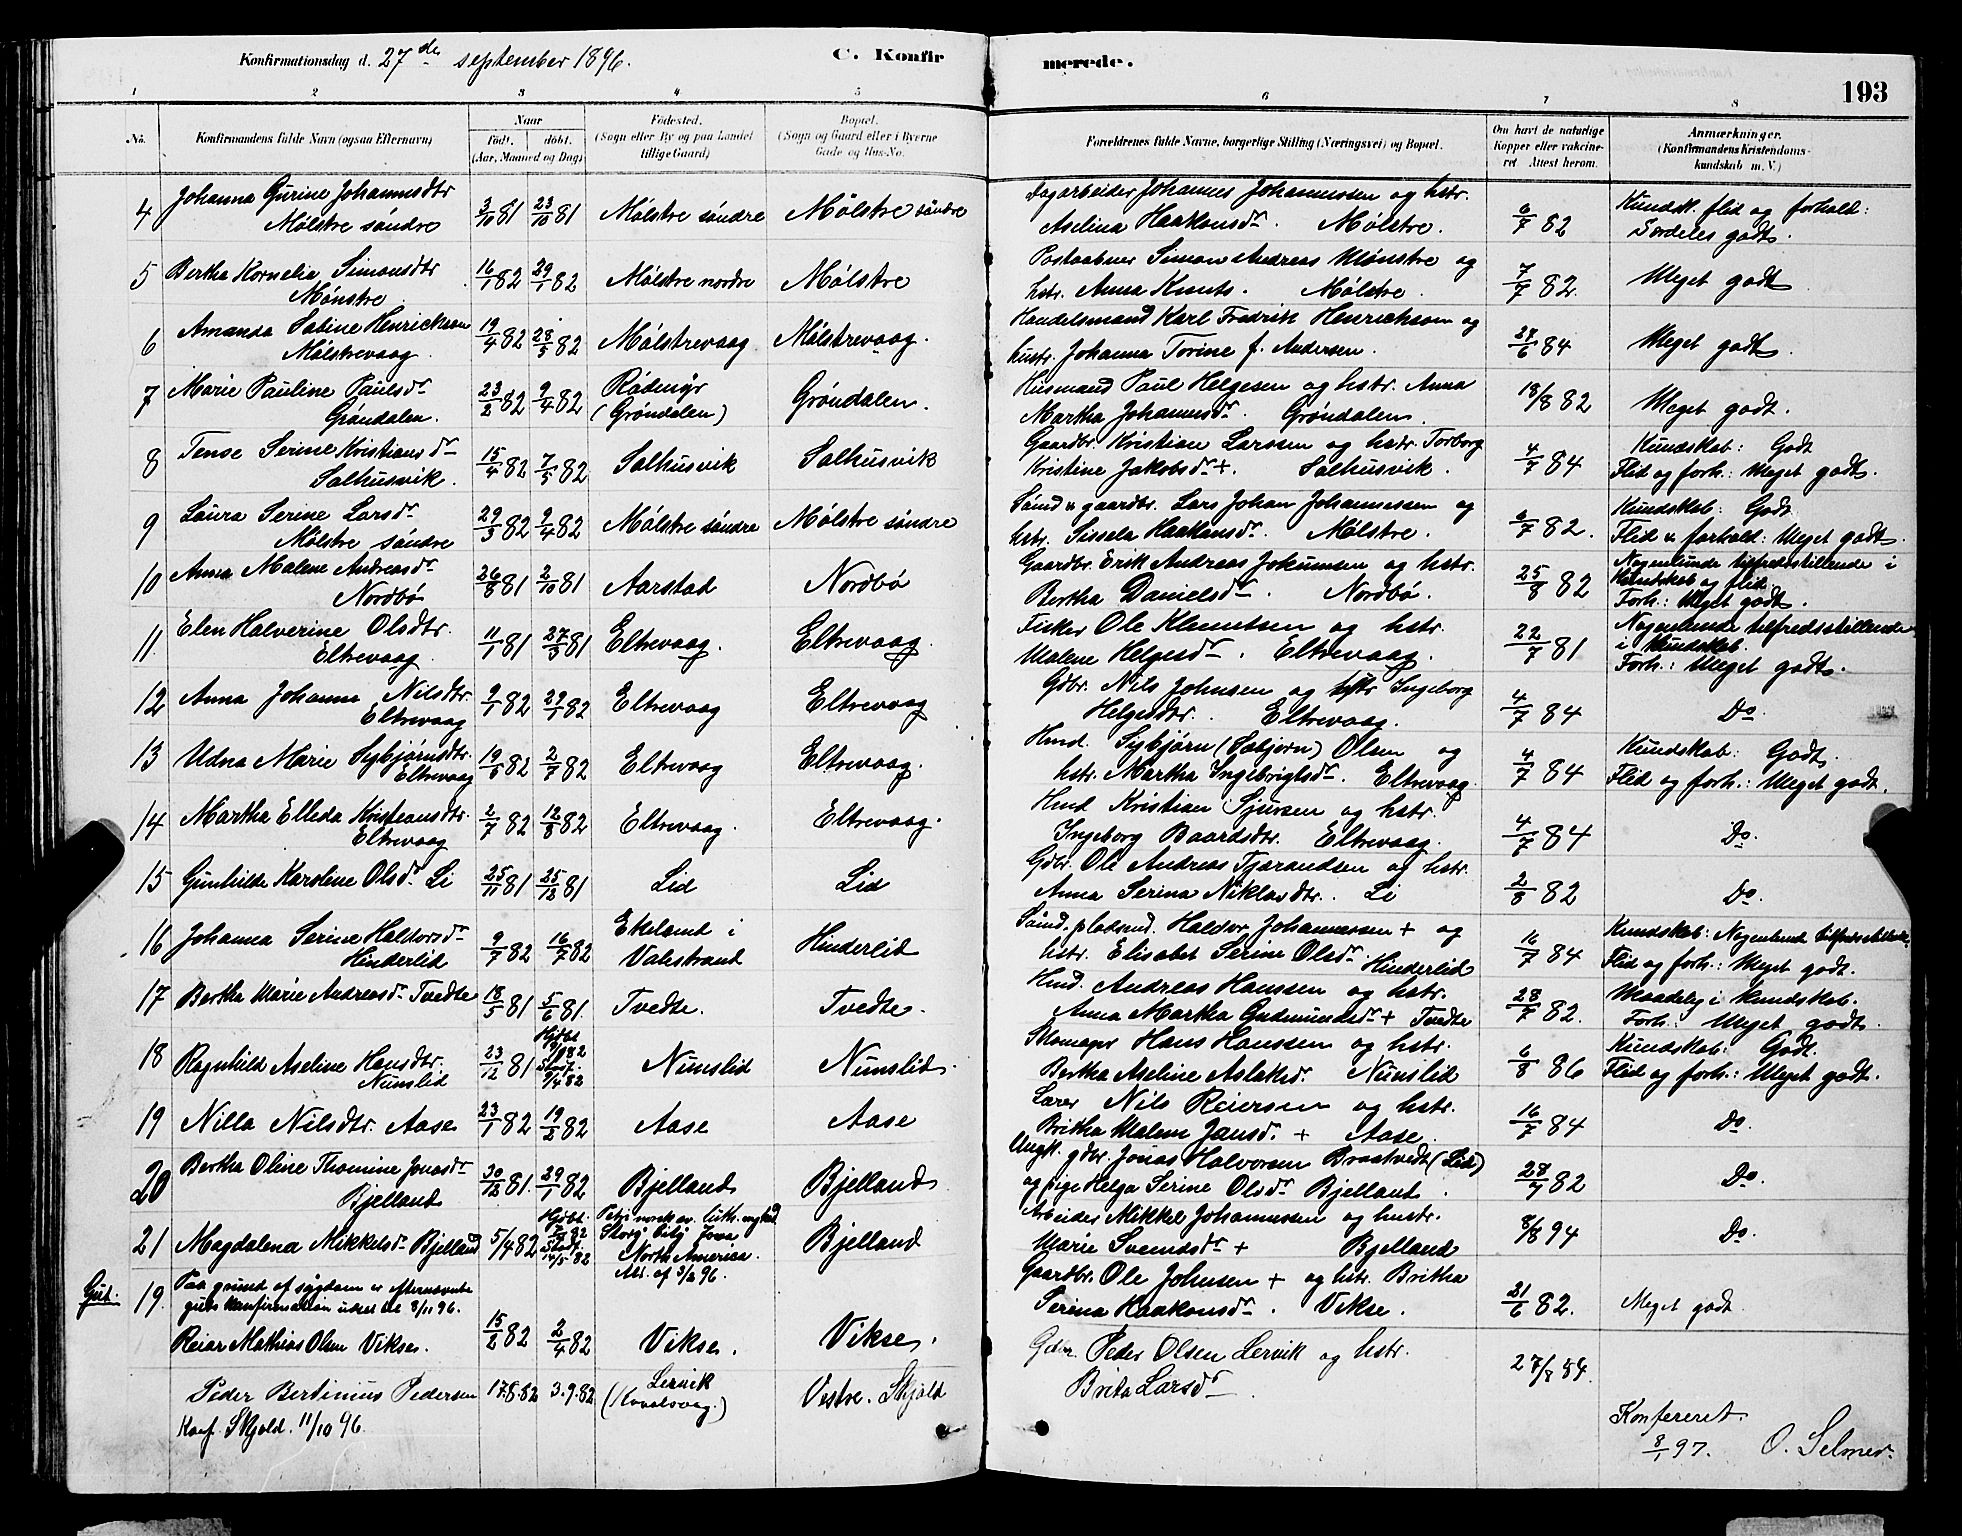 Konfirmationsdag d. 27de september 1896. C. Konfir merede. 193
1 2 3 4 5 6 7 8
No. Konfirmandens fulde Navn (ogsaa Efternavn)
Naar
Født. døbt.
(Aar, Maaned og Dag)
Fødested.
(Sogn eller By og paa Landet
tillige Gaard)
Bopæl.
(Sogn og Gaard eller i Byerne
Gade og Hus-No.
Forældrenes fulde Navne, borgerlige Stilling (Næringsvei) og Bopæl.
Om havt de naturlige
Kopper eller vaccine-
ret Attest herom.
Anmærkninger.
(Konfirmandens Kristendoms-
kundskab m. V.)
4 Johanna Gurine Johannesdtr
Mølstre søndre 3/10 81 23/10 81 Mølstre søndre Mølstre søndre
Dagarbeider Johannes Johannessen og hstr.
Aselina Haakonsdr. Mølstre. 6/7 82
Kundsk. flid og forhold:
Særdeles godt.
5 Bertha Kornelia Simonsdtr
Mønstre 16/1 82 29/1 82 Mølstre nordre Mølstre
Postaabner Simon Andreas Mønstre og
hstr. Anna Knuts. Mølstre. 7/7 82. Meget godt
6 Amanda Sabine Henricksen
Mølstrevaag 19/4 82 28/5 82 Mølstrevaag Mølstrevaag.
Handelsmand Karl Fredrik Henricksen og
hustr. Johanna Torine f. Andersen. 6 84 Meget godt
7 Marie Pauline Paulsdr
Grøndalen. 23/2 82 9/4 82 Rødmyr
(Grøndalen) Grøndalen.
Husmand Paul Helgesen og hstr. Anna
Martha Johannesdr. Grøndalen. 18/8 82 Meget godt.
8 Tense Serine Kristiansdr
Salhusvik. 15/4 82 7/5 82 Salhusvik Salhusvik
Gaardbr. Kristian Larssen og hstr. Torborg
Kristine Jakobsdr +. Salhusvik. 4/7 84
Kundskab: Godt
Flid og forh.: Meget godt.
9 Laura Serine Larsdr
Mølstre søndre 29/3 82 9/4 82 Mølstre søndre Mølstre søndre
Sømd & gaardbr. Lars Johan Johannessen og
hstr. Sissela Haakonsdr. Mølstre. 6/7 82.
Kundskab: Godt
Flid & forhold: Meget godt.
10 Anna Malene Andreasdr
Nordbø 26/8 81 2/10 81 Aarstad Nordbø
Gaardbr. Erik Andreas Jokumsen og hstr.
Bertha Danielsdr. Nordbø. 25/8 82
Nogenlunde tilfredsstillende i
Kundskab og flid.
Forh.: Meget godt.
11. Elen Halverine Olsdtr.
Eltrevaag. 11/1 81 27/3 81 Eltrevaag. Eltrevaag.
Fisker Ole Klemetsen og hstr.
Malene Helgesdr. Eltrevaag. 22/7 81
Nogenlunde tilfredsstillende
i kundskab.
Forh.: Meget godt.
12 Anna Johanna Nilsdtr.
Eltrevaag 9/1 82 29/1 82 Eltrevaag Eltrevaag
Gdbr. Nils Johnsen og hstr Ingeborg
Helgesdtr. Eltrevaag. 4/7 84 Do.
13 Udna Marie Sybjørnsdtr.
Eltrevaag 19/6 82 2/7 82 Eltrevaag Eltrevaag.
Hmd. Sybjørn (Sebjørn) Olsen og
hstr. Martha Ingebrigtsdr. Eltrevaag. 4/7 84
Kundskab: Godt.
Flid og forh.: Meget godt.
14 Martha Elleda Kristiansdtr.
Eltrevaag 2/7 82 12/8 82 Eltrevaag. Eltrevaag.
Hmd Kristian Sjursen og hstr.
Ingeborg Baardsdtr. Eltrevaag. 4/7 84 Do.
15 Gunhilde Karoline Olsdr. Li 25/11 81 25/12 81 Lid Lid
Gdbr. Ole Andreas Tjarandsen og hstr.
Anna Serina Niklasdtr. Li 2/8 82 Do.
16 Johanna Serine Haldorsdr
Hinderlid 9/7 82 16/7 82 Ekeland i
Valestrand Hinderlid
Sømd. pladsmd. Haldor Johannessen + og
hstr. Elisabet Serine Olsdr. Hinderlid 16/7 84
Kundskab: Nogenlund tilfredsstillende.
Flid og forh.: Meget godt.
17 Bertha Marie Andreasdr Tvedte 18/5 81 5/6 81. Tvedte. Tvedte.
Hmd. Andreas Hanssen og hstr.
Anna Martha Gudmundsdr + Tvedte 28/7 82.
Maadelig i kundskab.
Forh.: Meget godt.
18 Ragnhild Aseline Hansdtr.
Numslid 23/12 81 Hjdbt 82
Stadf. 9/4 82 Numslid Numslid.
Skomager Hans Hanssen og hstr.
Bertha Aseline Aslaksd. Numslid 6/8 86
Kundskab: Godt.
Flid og forh.: Meget godt.
19 Nilla Nilsdtr. Aase 23/1 82 19/2 82 Aase Aase
Lærer Nils Reiersen og hstr.
Britha Malene Jansd. + Aase. 16/7 84 Do.
20 Bertha Oline Thomine Jonasdr
Bjelland 30/12 81. 29/1 82 Bjelland Bjelland
Ungk. gdbr. Jonas Halvorsen Braatvedt (Lid)
og pige Helga Serine Olsdr Bjelland. 28/7 82 Do.
21 Magdalena Mikkelsdr Bjelland 5/4 82 Hjdbt. 7/4 82
Stadf. 14/5 82 Petri norsk ev. luth. mghed.
Story City Jowa
North America.
Att. af 3/2 96. Bjelland
Arbeider Mikkel Johannessen og hustr.
Marie Svendsdr + Bjelland 8/8 94 Do.
Gut. 19. Paa grund af sygdom er efternævnte
guts konfirmation udsat til 8/11 96.
Reiar Mathias Olsen Vikse. 15/2 82 2/4 82 Vikse. Vikse.
Gaardbr. Ole Johnsen + og hstr. Britha
Serina Haakonsdr. Vikse. 21/6 82. Meget godt.
Peder Bertinius Pedersen 17.8.82 3.9.82 Lervik
(Kvalsvag.) Vestre. Skjold
Konf. Skjold. 11/10 96.
Gdbr. Peder Olsen Lervik og hstr.
Brita Larsdr 27/8 84.
Konfereret.
8/1 97. O. Selmer.